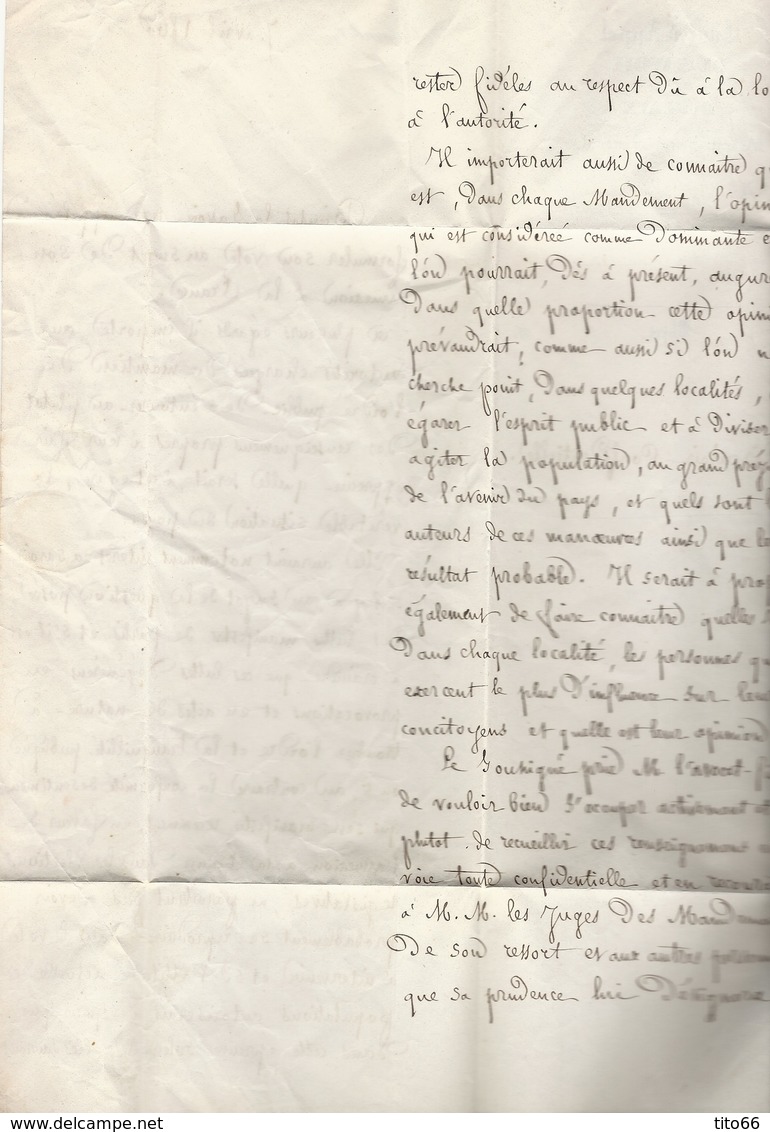 rester fidèles au respect dû à la lo
à l'autorité.
Il importerait aussi de connaitre q
est, dans chaque Mandement, l'opin
qui est considérée comme dominante e
l'on pourrait, dès à présent, augur
dans quelle proportion cette opini
prévaudrait, comme aussi si l'on n
cherche point, dans quelques localités,
égarer l'esprit public et à diviser
agiter la population, au grand préj
de l'avenir du pays, et quels sont l
auteurs de ces manœuvres ainsi que le
résultat probable. Il serait à prop
également de faire connaitre quelles
dans chaque localité, les personnes qu
exercent le plus d'influence sur leur
concitoyens et quelle est leur opinion
Le Soussigné prie M. l'avocat-f
de vouloir bien s'occuper activement et
plutot de recueillir ces renseignemens
voie toute confidentielle et en recour
à M. M. les Juges des Mandem
de son ressort et aux autres person
que sa prudence lui désignera
www.delcampe.net
tito66